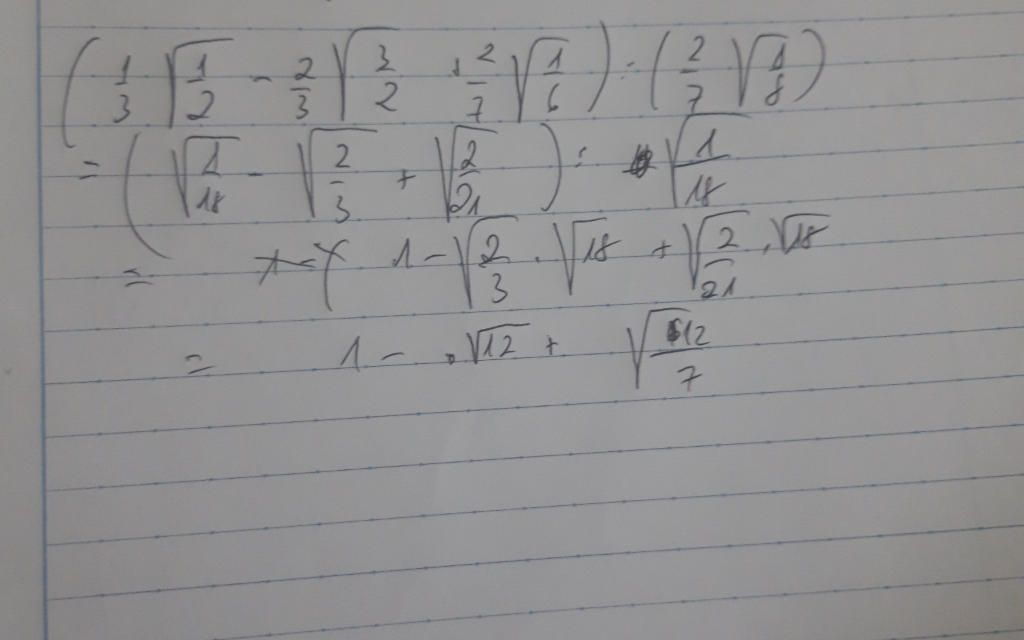 (1/3 √(1/2) - 2/3 √(3/2) + 2/7 √(1/6)) : (2/7 √(1/8))
= (√(1/18) - √(2/3) + √(2/21)) : √(1/18)
= 1 - √(2/3) . √18 + √(2/21) . √18
= 1 - √12 + √(12/7)